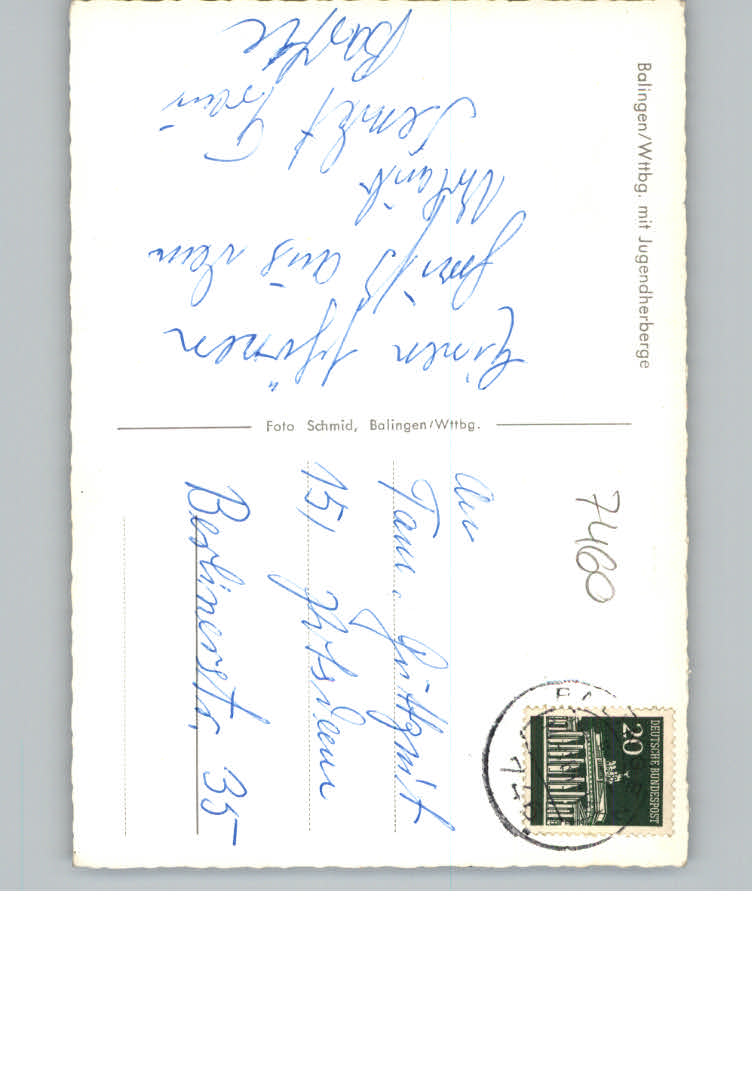 Balingen/Wttbg. mit Jugendherberge
Einen schönen
Gruß aus dem
Urlaub
sendet Frau
Foto Schmid, Balingen/Wttbg.
7460
An
Fam.
151
Berlinerstr. 35
DEUTSCHE BUNDESPOST
20